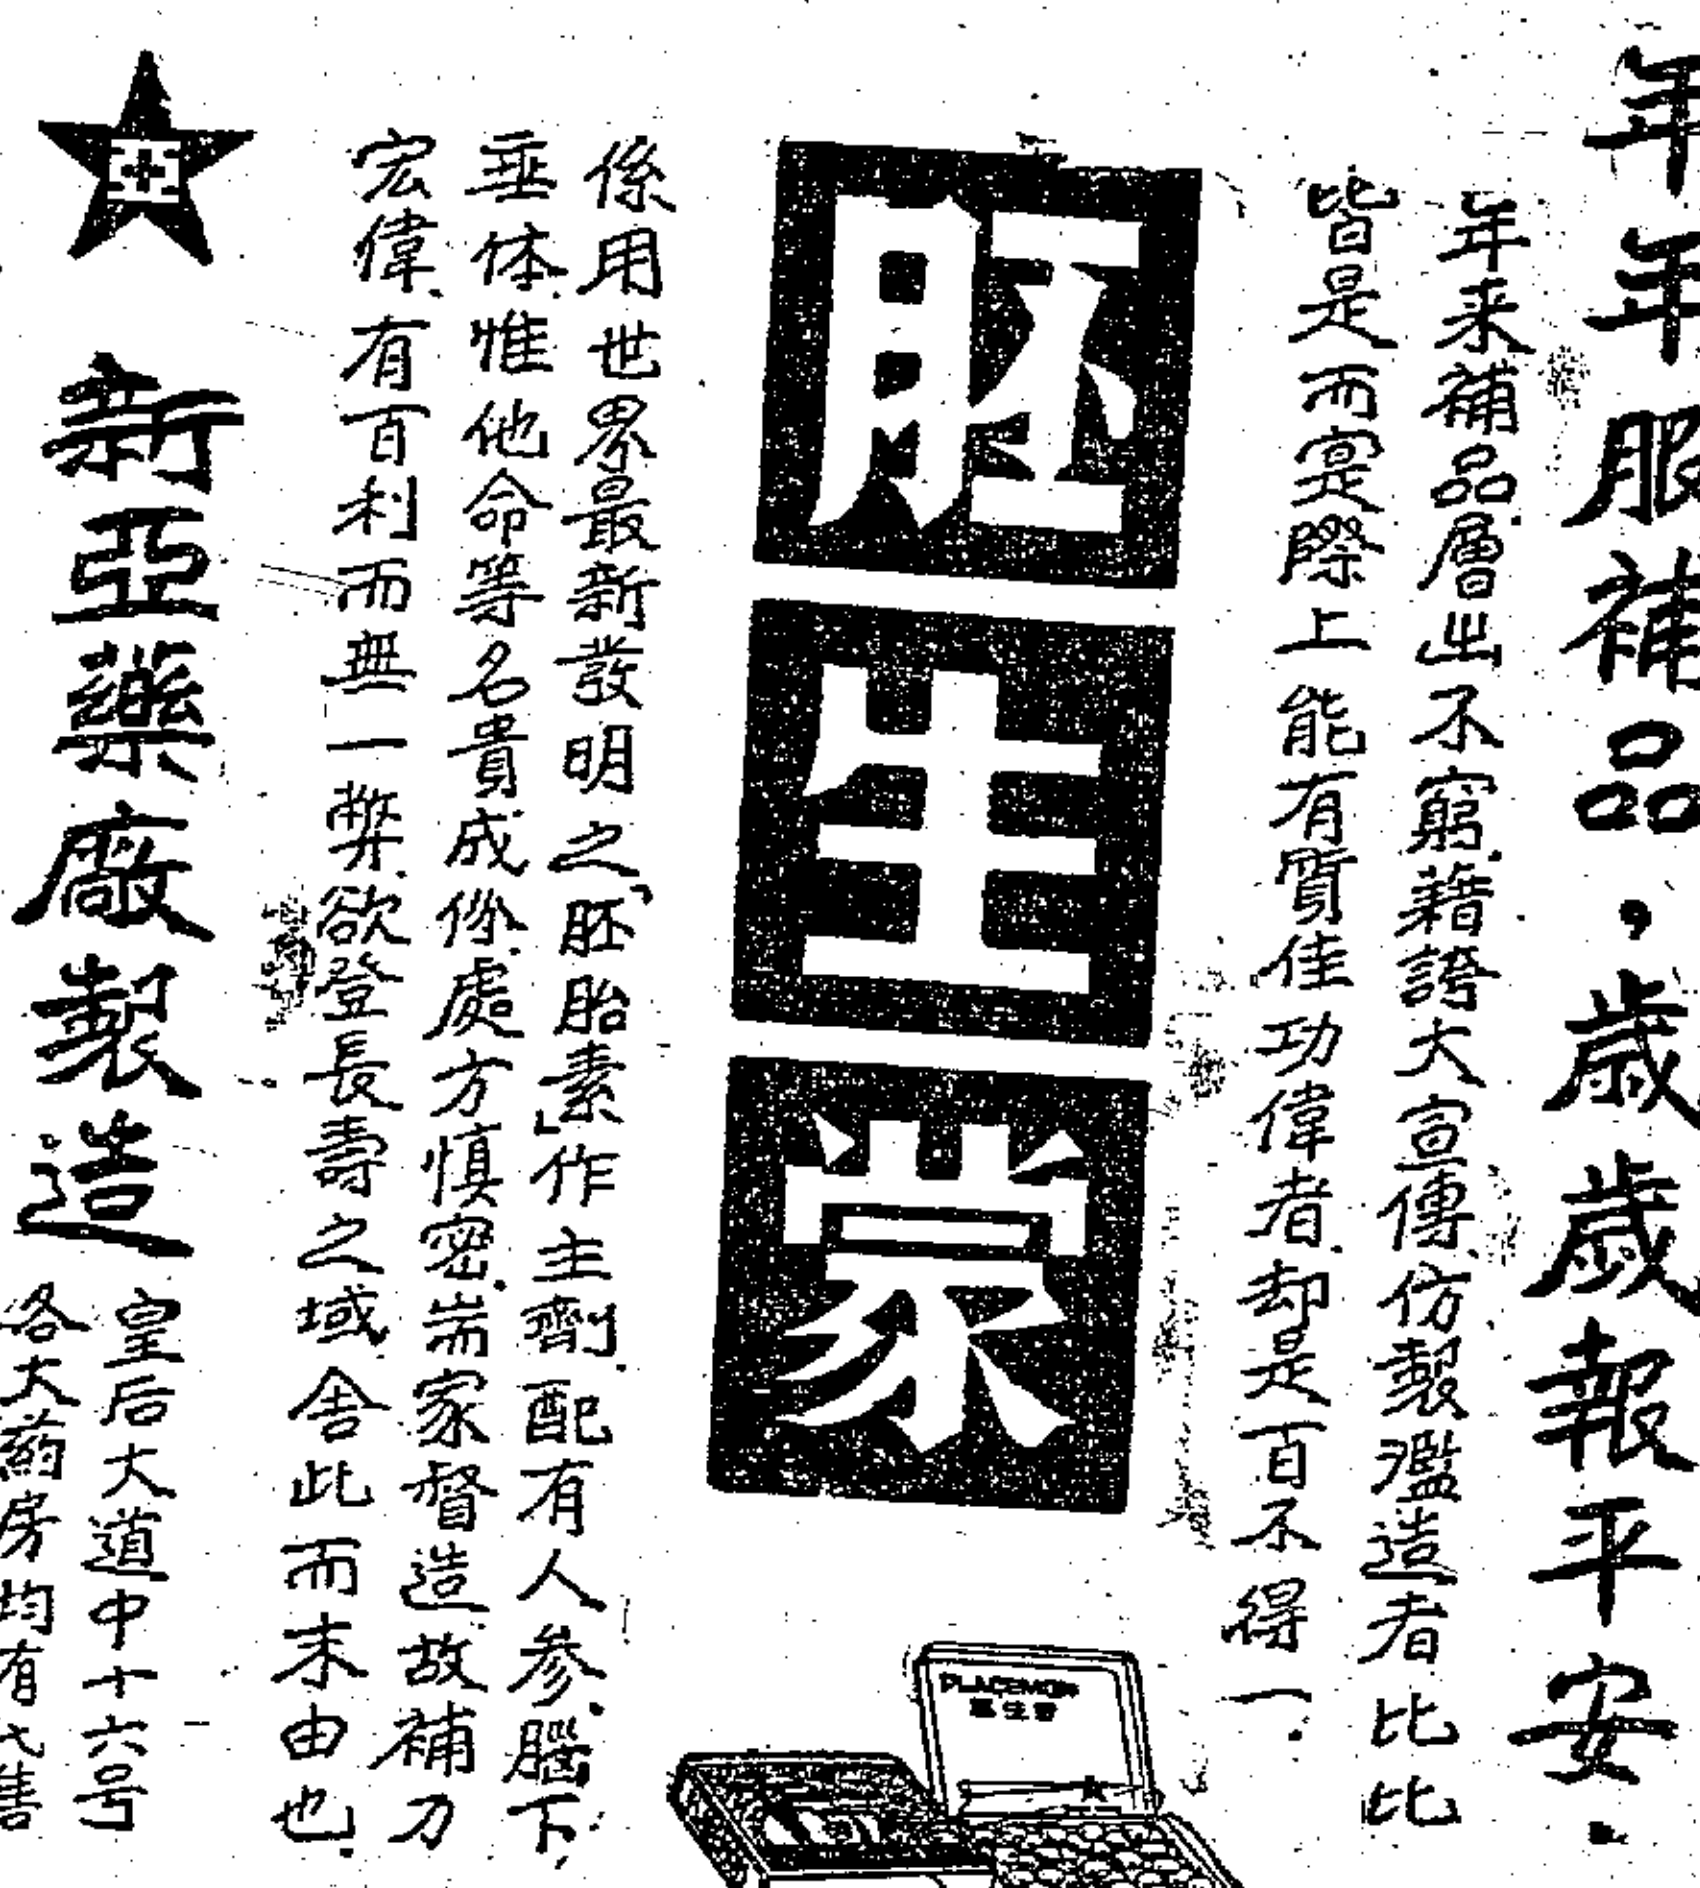 年年服補品，歲歲報平安．
年来補品層出不窮．藉誇大宣傳．仿製濫造者比比
皆是而寔際上能有質佳功偉者．却是百不得一．
胚生蒙
係用世界最新發明之「胚胎素」作主劑．配有人參．腦下
垂体．惟他命等名貴成份．處方慎密．耑家督造．故補力
宏偉．有百利而無一弊．欲登長壽之域．舍此而末由也．
新亞藥廠製造
皇后大道中十六号
各大葯房均有代售
PLACEMON